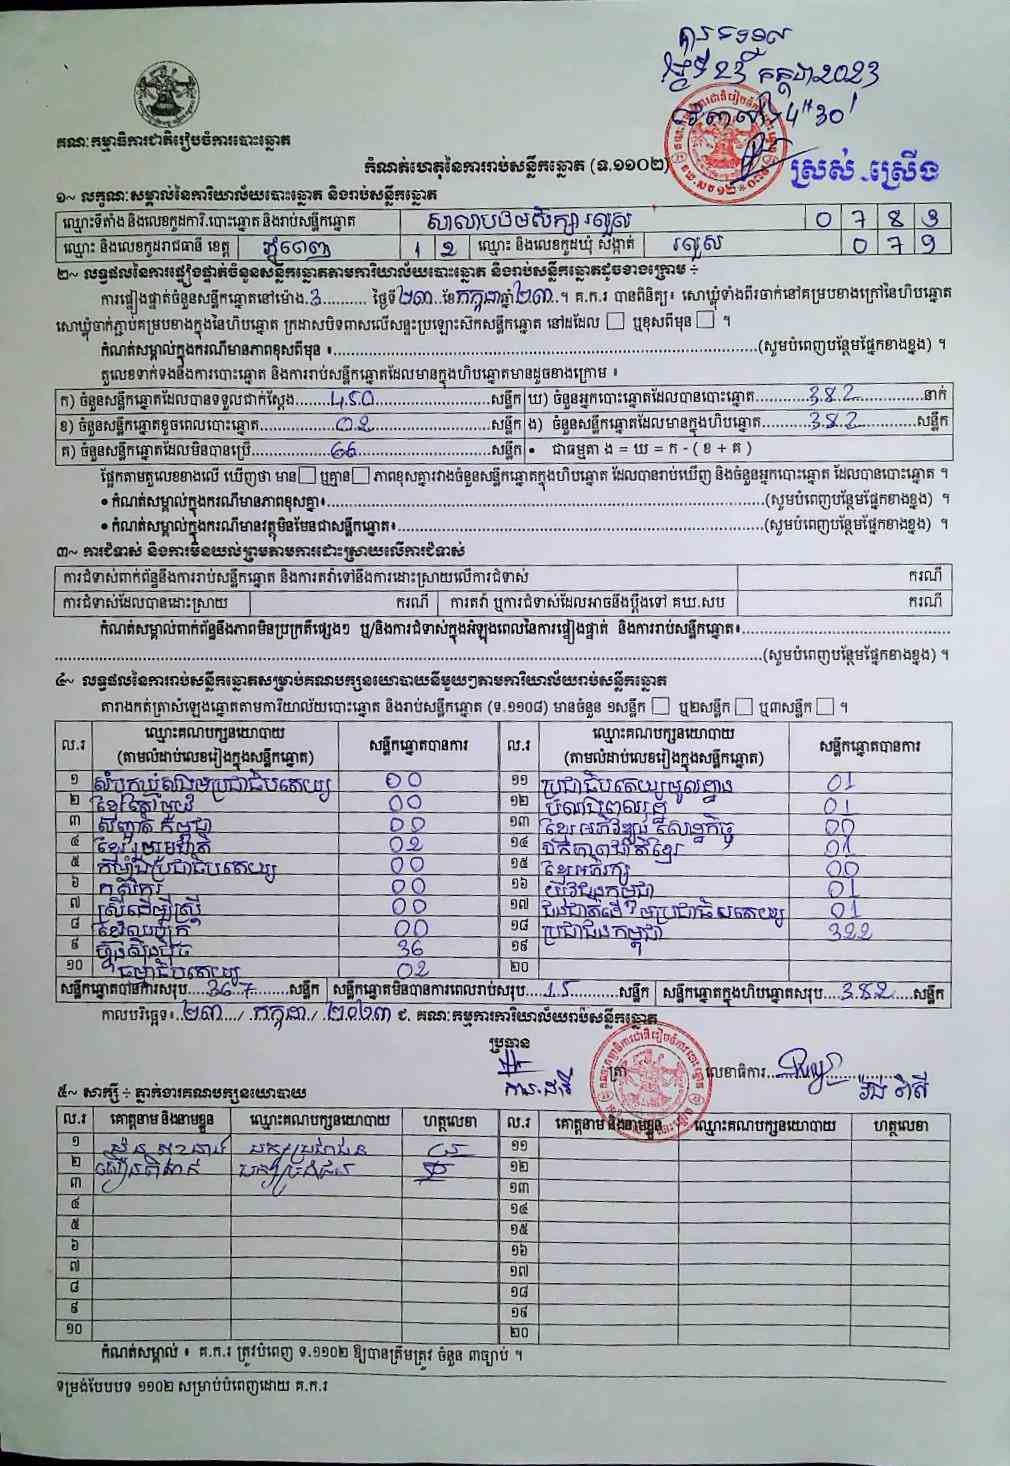 ថ្ងៃទី 23 កក្កដា 2023
4H 30'
គណៈកម្មាធិការជាតិរៀបចំការបោះឆ្នោត
កំណត់ហេតុនៃការរាប់សន្លឹកឆ្នោត (ទ.១១០២)
ស្រស់ ស្រើង
១~ លក្ខណៈសម្គាល់នៃការិយាល័យបោះឆ្នោត និងរាប់សន្លឹកឆ្នោត
ឈ្មោះទីតាំង និងលេខកូដការិ.បោះឆ្នោត និងរាប់សន្លឹកឆ្នោត សាលាបឋមសិក្សា រលួស 0 7 8 3
ឈ្មោះ និងលេខកូដរាជធានី ខេត្ត ភ្នំពេញ 1 2 ឈ្មោះ និងលេខកូដឃុំ សង្កាត់ រលួស 0 7 9
២~ លទ្ធផលនៃការផ្ទៀងផ្ទាត់ចំនួនសន្លឹកឆ្នោតតាមការិយាល័យបោះឆ្នោត និងរាប់សន្លឹកឆ្នោតដូចខាងក្រោម ÷
ការផ្ទៀងផ្ទាត់ចំនួនសន្លឹកឆ្នោតនៅម៉ោង.3.......... ថ្ងៃទី២៣..ខែកក្កដាឆ្នាំ២៣..។ គ.ក.រ បានពិនិត្យ៖ សោឃ្លុំទាំងពីរចាក់នៅគម្របខាងក្រៅនៃហិបឆ្នោត
សោឃ្លុំចាក់ភ្ជាប់គម្របខាងក្នុងនៃហិបឆ្នោត ក្រដាសបិទពាសលើសន្ទះប្រឡោះស៊កសន្លឹកឆ្នោត នៅដដែល □ ឬខុសពីមុន □ ។
កំណត់សម្គាល់ក្នុងករណីមានភាពខុសពីមុន ៖..........(សូមបំពេញបន្ថែមផ្នែកខាងខ្នង) ។
តួលេខទាក់ទងនឹងការបោះឆ្នោត និងការរាប់សន្លឹកឆ្នោតដែលមានក្នុងហិបឆ្នោតមានដូចខាងក្រោម ៖
ក) ចំនួនសន្លឹកឆ្នោតដែលបានទទួលជាក់ស្តែង.......450..........សន្លឹក ឃ) ចំនួនអ្នកបោះឆ្នោតដែលបានបោះឆ្នោត..........382..........នាក់
ខ) ចំនួនសន្លឹកឆ្នោតខូចពេលបោះឆ្នោត..........02..........សន្លឹក ង) ចំនួនសន្លឹកឆ្នោតដែលមានក្នុងហិបឆ្នោត..........382..........សន្លឹក
គ) ចំនួនសន្លឹកឆ្នោតដែលមិនបានប្រើ..........66..........សន្លឹក • ជាធម្មតា ង = ឃ = ក - ( ខ + គ )
ផ្អែកតាមតួលេខខាងលើ ឃើញថា មាន □ ឬគ្មាន □ ភាពខុសគ្នារវាងចំនួនសន្លឹកឆ្នោតក្នុងហិបឆ្នោត ដែលបានរាប់ឃើញ និងចំនួនអ្នកបោះឆ្នោត ដែលបានបោះឆ្នោត ។
• កំណត់សម្គាល់ក្នុងករណីមានភាពខុសគ្នា៖..........(សូមបំពេញបន្ថែមផ្នែកខាងខ្នង) ។
• កំណត់សម្គាល់ក្នុងករណីមានវត្ថុមិនមែនជាសន្លឹកឆ្នោត៖..........(សូមបំពេញបន្ថែមផ្នែកខាងខ្នង) ។
៣~ ការជំទាស់ និងការមិនយល់ព្រមតាមការដោះស្រាយលើការជំទាស់
ការជំទាស់ពាក់ព័ន្ធនឹងការរាប់សន្លឹកឆ្នោត និងការតវ៉ាទៅនឹងការដោះស្រាយលើការជំទាស់ ករណី
ការជំទាស់ដែលបានដោះស្រាយ ករណី ការតវ៉ា ឬការជំទាស់ដែលអាចនឹងប្តឹងទៅ គឃ.សប ករណី
កំណត់សម្គាល់ពាក់ព័ន្ធនឹងភាពមិនប្រក្រតីផ្សេងៗ ឬ/និងការជំទាស់ក្នុងអំឡុងពេលនៃការផ្ទៀងផ្ទាត់ និងការរាប់សន្លឹកឆ្នោត៖..........
..........(សូមបំពេញបន្ថែមផ្នែកខាងខ្នង) ។
៤~ លទ្ធផលនៃការរាប់សន្លឹកឆ្នោតសម្រាប់គណបក្សនយោបាយនីមួយៗតាមការិយាល័យរាប់សន្លឹកឆ្នោត
តារាងកត់ត្រាសំឡេងឆ្នោតតាមការិយាល័យបោះឆ្នោត និងរាប់សន្លឹកឆ្នោត (ទ.១១០៨) មានចំនួន ១សន្លឹក □ ឬ២សន្លឹក □ ឬ៣សន្លឹក □ ។
ល.រ ឈ្មោះគណបក្សនយោបាយ (តាមលំដាប់លេខរៀងក្នុងសន្លឹកឆ្នោត) សន្លឹកឆ្នោតបានការ ល.រ ឈ្មោះគណបក្សនយោបាយ (តាមលំដាប់លេខរៀងក្នុងសន្លឹកឆ្នោត) សន្លឹកឆ្នោតបានការ
១ សំបុកឃ្មុំសង្គមប្រជាធិបតេយ្យ 00 ១១ ប្រជាធិបតេយ្យមូលដ្ឋាន 01
២ ខ្មែរតែមួយ 00 ១២ បំណងពលរដ្ឋ 01
៣ សញ្ជាតិកម្ពុជា 00 ១៣ ខ្មែរអភិវឌ្ឍន៍សេដ្ឋកិច្ច 00
៤ ខ្មែររួបរួមជាតិ 02 ១៤ ឯកភាពជាតិខ្មែរ 01
៥ កម្លាំងប្រជាធិបតេយ្យ 00 ១៥ ខ្មែរអភិរក្ស 00
៦ កសិករ 00 ១៦ យុវជនកម្ពុជា 01
៧ ស្រ្តីដើម្បីស្រ្តី 00 ១៧ ជនជាតិដើមប្រជាធិបតេយ្យ 01
៨ ខ្មែរឈប់ក្រ 00 ១៨ ប្រជាជនកម្ពុជា 322
៩ ហ៊្វុនស៊ិនប៉ិច 36 ១៩
១០ ធម្មាធិបតេយ្យ 02 ២០
សន្លឹកឆ្នោតបានការសរុប....367..........សន្លឹក សន្លឹកឆ្នោតមិនបានការពេលរាប់សរុប....15..........សន្លឹក សន្លឹកឆ្នោតក្នុងហិបឆ្នោតសរុប....382....សន្លឹក
កាលបរិច្ឆេទ៖..២៣.../.កក្កដា./..២០២៣ ជ. គណៈកម្មការការិយាល័យរាប់សន្លឹកឆ្នោត
ប្រធាន
ត្រា លេខាធិការ
៥~ សាក្សី ÷ ភ្នាក់ងារគណបក្សនយោបាយ
ល.រ គោត្តនាម និងនាមខ្លួន ឈ្មោះគណបក្សនយោបាយ ហត្ថលេខា ល.រ គោត្តនាម និងនាមខ្លួន ឈ្មោះគណបក្សនយោបាយ ហត្ថលេខា
១ បក្សប្រជាជន ១១
២ ១២
៣ ១៣
៤ ១៤
៥ ១៥
៦ ១៦
៧ ១៧
៨ ១៨
៩ ១៩
១០ ២០
កំណត់សម្គាល់ ៖ គ.ក.រ ត្រូវបំពេញ ទ.១១០២ ឱ្យបានត្រឹមត្រូវ ចំនួន ៣ច្បាប់ ។
ទម្រង់បែបបទ ១១០២ សម្រាប់បំពេញដោយ គ.ក.រ